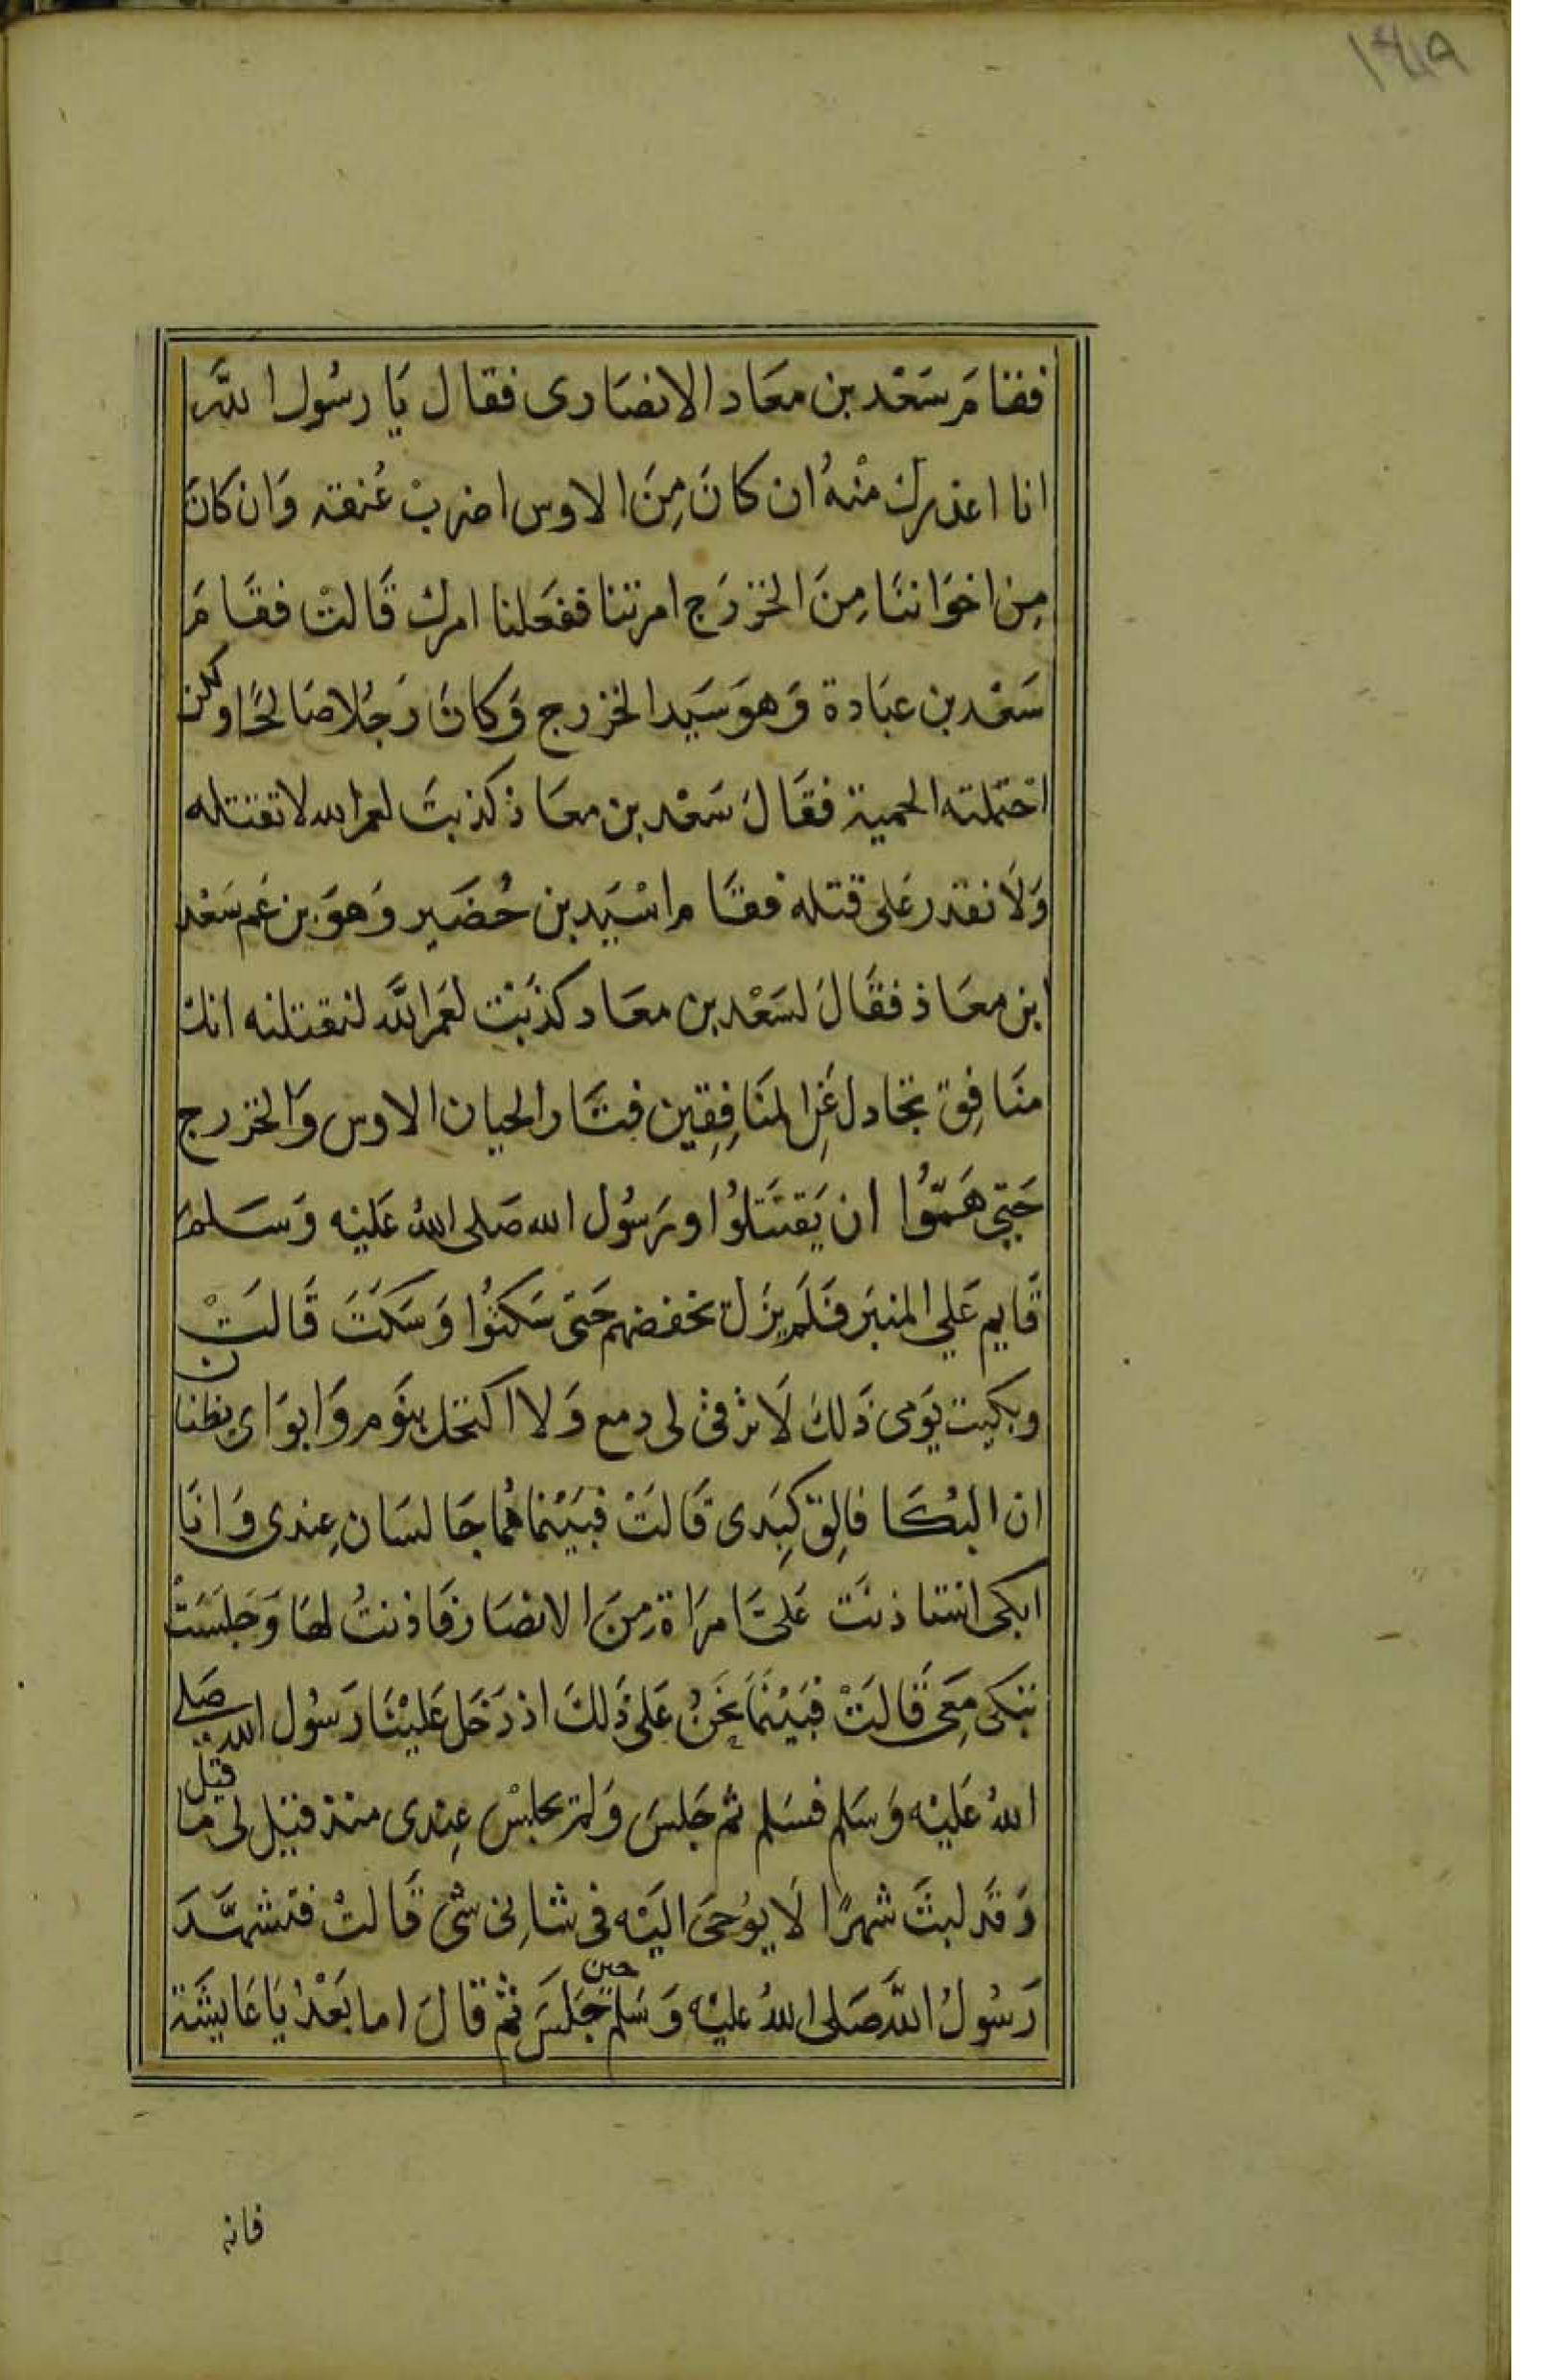 فقام سَعْد بن معَاد الانصَارى فقال يَا رسُول اللَّه
انا اعذرك منْهُ ان كانَ مِنَ الاوس اضربْ عُنقه وَان كانَ
مِن اخوَاننَا مِنَ الخزرَج امرتنا ففعَلنا امرك قَالتْ فقَامَ
سَعْد بن عبَادة وَهوَ سَيد الخزرج وَكانَ رَجُلا صَالحًا ولكن
احتملته الحمية فقَالَ سَعْد بن معَاذ كذبتَ لعمر الله لا تقتله
وَلَا تقدر عَلى قتله فقَام اسْيَد بن حُضَير وَهوَ بن عَم سَعْد
ابن معَاذ فقَالَ لسَعْد بن معَاد كذَبْت لعَمر اللَّه لنقتلنه انك
منَافِق تجَادل عَنِ المنَافِقِين فثَار الحيان الاوس وَالخزرج
حَتي هَمّوُا ان يَقتَتلوُا ورَسُول الله صَلى اللهُ عَليْه وَسَلم
قَايم عَلي المنبَر فَلَم يزَل يخفضهم حَتى سَكتوُا وَسَكَتَ قَالتْ
وبكيت يَومى ذَلكَ لَا يرقى لى دمع وَلا اكتحل بنَوم وَابوَاى يظنان
ان البُكَا فالِق كِبَدى قَالَتْ فبَيْنما هُما جَالسَان عِندى وَانَا
ابكى استاذنَت عَلىَّ امرَاة مِنَ الانصَار فَاذنتُ لهَا وَجَلسَتْ
تبَكى مَعِى قَالَتْ فبَيْنمَا نَحْنُ عَلى ذَلكَ اذ دَخَل عَليْنَا رَسُول الله صَلى
اللهُ عَليْه وَسَلم فسَلم ثم جَلسَ وَلم يجلسْ عِندى منذ قبل لى ما قيل
وَقَد لبثَ شهرًا لَا يوُحَى اليَه فى شانى شى قَالتْ فتشهَّدَ
رَسُولُ اللَّه صَلى اللهُ عليْه وَسَلم حين جَلَسَ ثم قالَ اما بَعْدُ يَا عَايشَة
فانه